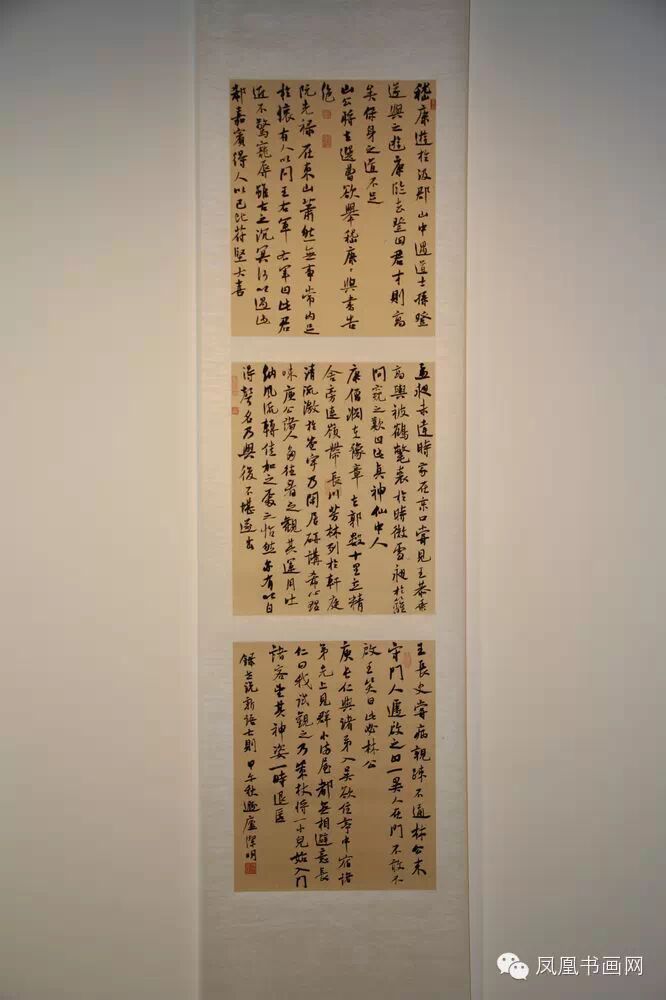 嵇康遊於汲郡山中遇道士孫登
遂與之遊康臨去登曰君才則高
矣保身之道不足
山公將去選曹欲舉嵇康康與書告
絕
阮光祿在東山蕭然無事常內足
於懷有人以問王右軍右軍曰此君
近不驚寵辱雖古之沉冥何以過此
郗嘉賓得人以己比苻堅大喜
孟昶未達時家在京口嘗見王恭乘
高輿被鶴氅裘於時微雪昶於籬
間窺之歎曰此真神仙中人
康僧淵在豫章去郭數十里立精
舍旁連嶺帶長川芳林列於軒庭
清流激於堂宇乃閒居研講希心理
味庾公諸人多往看之觀其運用吐
納風流轉佳加之處之怡然亦有以自
得聲名乃興後不堪遂出
王長史嘗病親疎不通林公來
守門人遽啟之曰一異人在門不敢不
啟王笑曰此必林公
庾長仁與諸弟入吳欲住亭中宿諸
弟先上見群小滿屋都無相避意長
仁曰我試觀之乃策杖將一小兒始入門
諸客望其神姿一時退匿
錄世說新語七則 甲午秋 廬深明
凤凰书画网